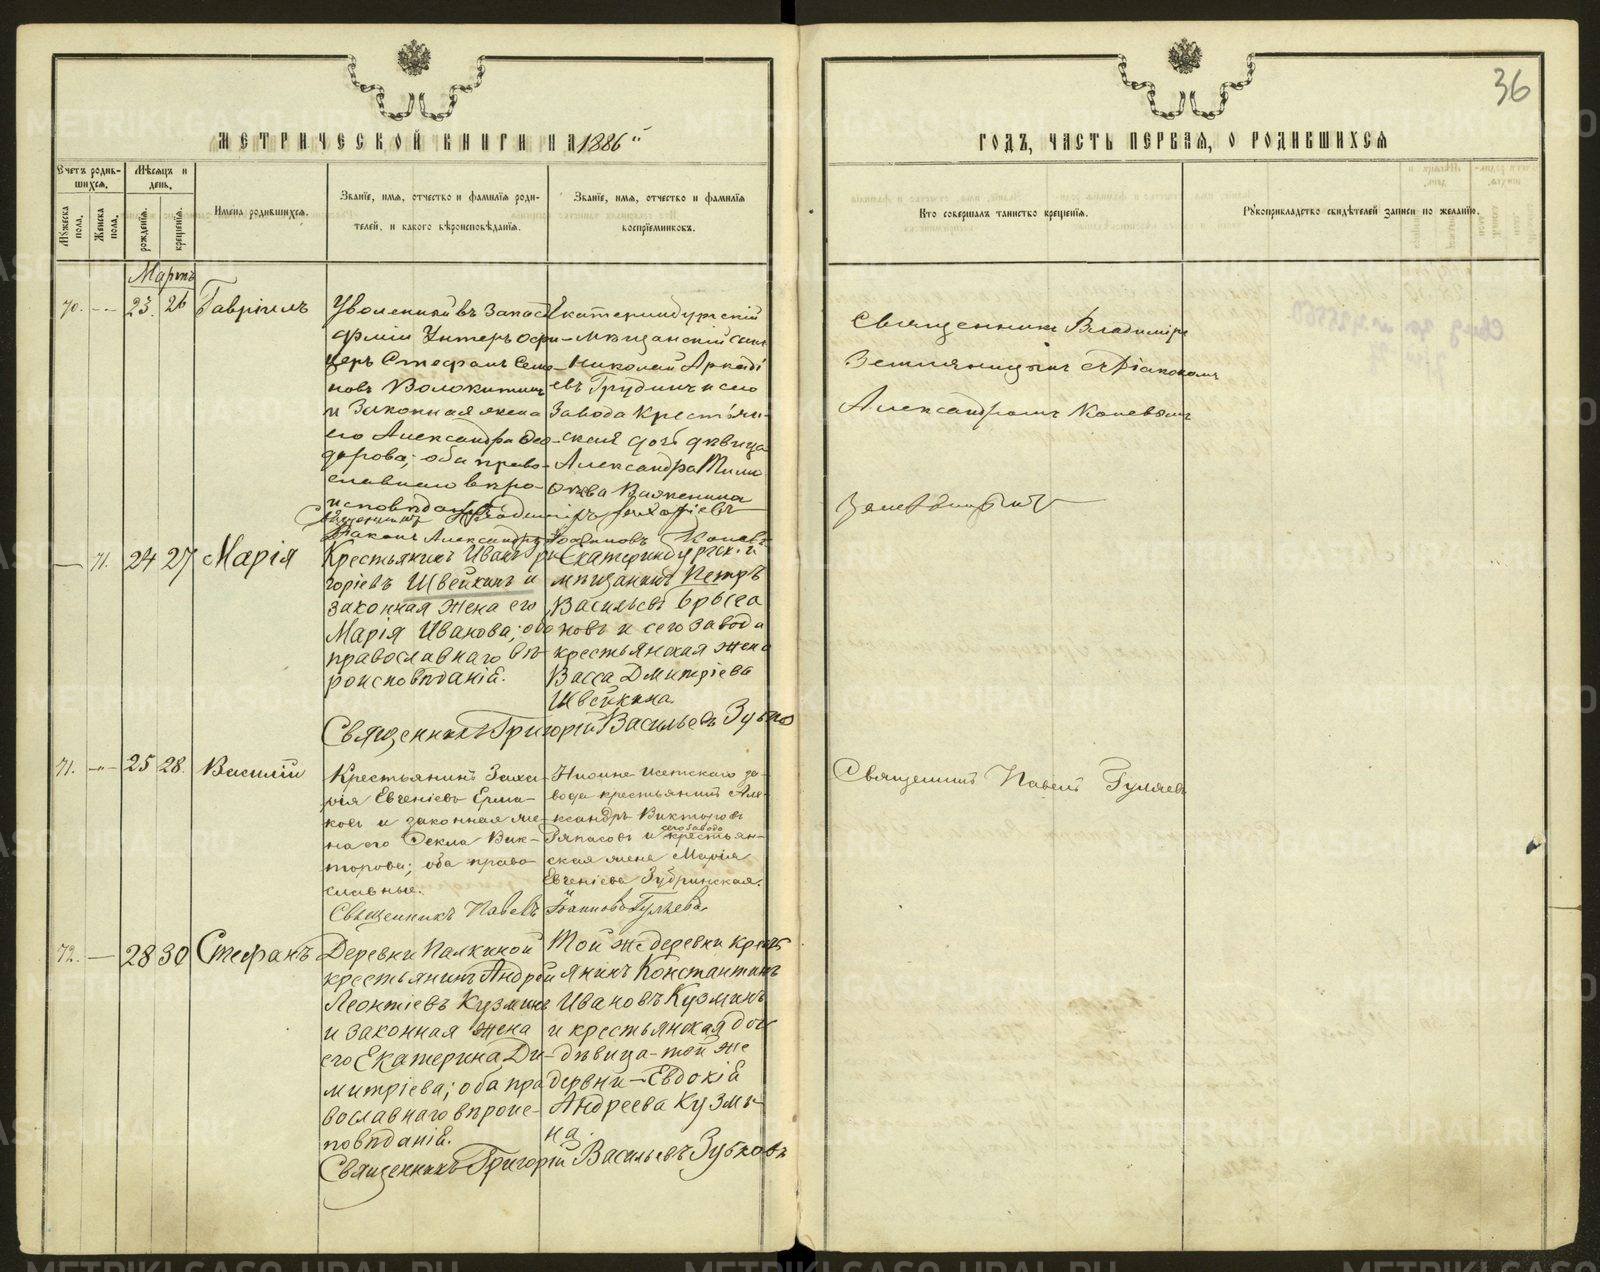 36
МЕТРИЧЕСКОЙ КНИГИ НА 1886 й
ГОДЪ, ЧАСТЬ ПЕРВАЯ, О РОДИВШИХСЯ
Счетъ родив-
шихся.
Мужеска пола.
Женска пола.
Мѣсяцъ и день.
рожденія.
крещенія.
Имена родившихся.
Званіе, имя, отчество и фамилія роди-
телей, и какого вѣроисповѣданія.
Званіе, имя, отчество и фамилія
воспріемниковъ.
Кто совершалъ таинство крещенія.
Рукоприкладство свидѣтелей записи по желанію.
Мартъ
70. 23. 26 Гавріилъ
Уволенный въ запасъ
арміи Унтеръ офи-
церъ Стефанъ Семе-
новъ Волокитинъ
и законная жена
его Александра Ѳео-
дорова; оба право-
славнаго вѣро-
исповѣданія
Екатеринбургскій
мѣщанскій сынъ
Николай Аркадi
евъ Грудинъ и сего
завода крестьян-
ская дочь дѣвица
Александра
Важенина
Священникъ Владиміръ
Діаконъ Александръ Коневъ
Священникъ Владиміръ
Земляницынъ съ Діакономъ
Александромъ Коневымъ
71. 24 27 Марія
Крестьянинъ Иванъ Гри
горіевъ Швейкинъ и
законная жена его
Марія Иванова; оба
православнаго вѣ-
роисповѣданія.
Екатеринбургскій
мѣщанинъ Петръ
Васильевъ Брыса
новъ и сего завода
крестьянская жена
Васса Дмитріева
Швейкина.
Священникъ Григорій Васильевъ Зубковъ
71. 25 28. Василій
Крестьянинъ Заха-
рія Евгеніевъ Ерма-
ковъ и законная же-
на его Ѳекла Вик-
торова; оба право-
славные.
Нижне Исетскаго за-
вода крестьянинъ Але-
ксандръ Викторовъ
Ряпасовъ и сего завода крестьян-
ская жена Марія
Евгеніева Зубринская.
Священникъ Павелъ Іоанновъ Гуляевъ
Священникъ Павелъ Гуляевъ
72. 28 30 Стефанъ
Деревни Палкиной
крестьянинъ Андрей
Леонтіевъ Кузминъ
и законная жена
его Екатерина Ди-
митріева; оба пра
вославнаго вѣроис-
повѣданія.
Той же деревни кресть
янинъ Константинъ
Ивановъ Кузминъ
и крестьянская доч
дѣвица той же
дервни Евдокія
Андреева Кузми-
на.
Священникъ Григорій Васильевъ Зубковъ
METRIKI.GASO-URAL.RU